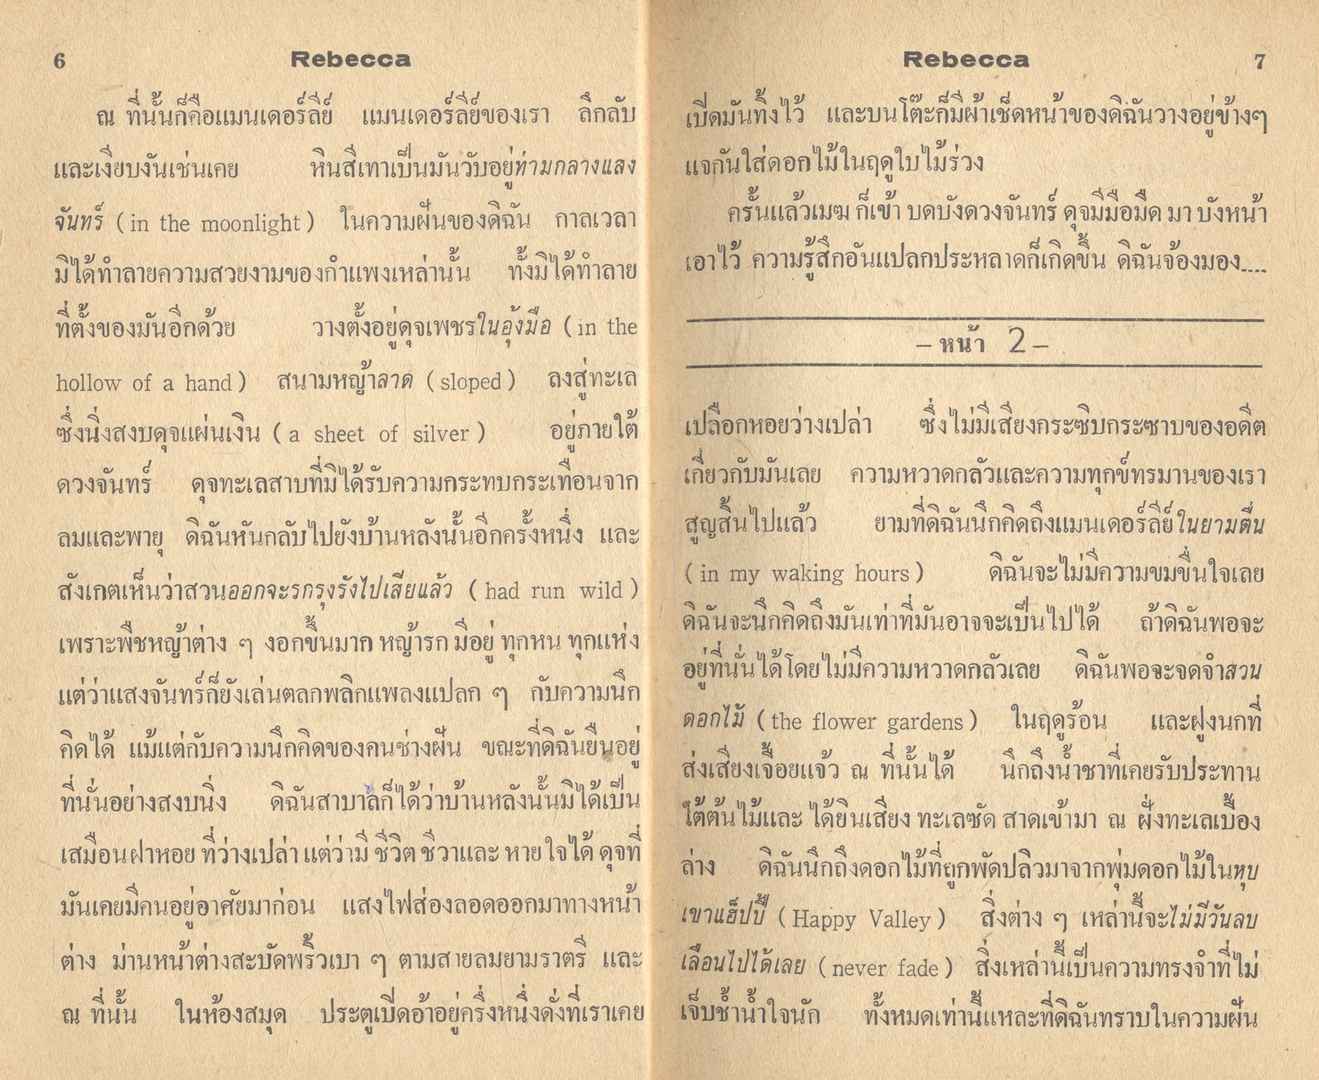 6
Rebecca
ณ ที่นั้นก็คือแมนเดอร์ลีย์ แมนเดอร์ลีย์ของเรา ลึกลับ
และเงียบงันเช่นเคย หินสีเทาเป็นมันวับอยู่ท่ามกลางแสง
จันทร์ (in the moonlight) ในความฝันของดิฉัน กาลเวลา
มิได้ทำลายความสวยงามของกำแพงเหล่านั้น ทั้งมิได้ทำลาย
ที่ตั้งของมันอีกด้วย วางตั้งอยู่ดุจเพชรในอุ้งมือ (in the
hollow of a hand) สนามหญ้าลาด (sloped) ลงสู่ทะเล
ซึ่งนิ่งสงบดุจแผ่นเงิน (a sheet of silver) อยู่ภายใต้
ดวงจันทร์ ดุจทะเลสาบที่มิได้รับความกระทบกระเทือนจาก
ลมและพายุ ดิฉันหันกลับไปยังบ้านหลังนั้นอีกครั้งหนึ่ง และ
สังเกตเห็นว่าสวนออกจะรกรุงรังไปเสียแล้ว (had run wild)
เพราะพืชหญ้าต่าง ๆ งอกขึ้นมาก หญ้ารก มีอยู่ ทุกหน ทุกแห่ง
แต่ว่าแสงจันทร์ก็ยังเล่นตลกพลิกแพลงแปลก ๆ กับความนึก
คิดได้ แม้แต่กับความนึกคิดของคนช่างฝัน ขณะที่ดิฉันยืนอยู่
ที่นั่นอย่างสงบนิ่ง ดิฉันสาบาลก็ได้ว่าบ้านหลังนั้นมิได้เป็น
เสมือนฝาหอย ที่ว่างเปล่า แต่ว่ามี ชีวิต ชีวาและ หายใจได้ ดุจที่
มันเคยมีคนอยู่อาศัยมาก่อน แสงไฟส่องลอดออกมาทางหน้า
ต่าง ม่านหน้าต่างสะบัดพริ้วเบา ๆ ตามสายลมยามราตรี และ
ณ ที่นั้น ในห้องสมุด ประตูเปิดอ้าอยู่ครึ่งหนึ่งดั่งที่เราเคย
Rebecca
7
เปิดมันทิ้งไว้ และบนโต๊ะก็มีผ้าเช็ดหน้าของดิฉันวางอยู่ข้างๆ
แจกันใส่ดอกไม้ในฤดูใบไม้ร่วง
ครั้นแล้วเมฆ ก็เข้า บดบังดวงจันทร์ ดุจมีมือมืด มา บังหน้า
เอาไว้ ความรู้สึกอันแปลกประหลาดก็เกิดขึ้น ดิฉันจ้องมอง....
– หน้า 2 –
เปลือกหอยว่างเปล่า ซึ่งไม่มีเสียงกระซิบกระซาบของอดีต
เกี่ยวกับมันเลย ความหวาดกลัวและความทุกข์ทรมานของเรา
สูญสิ้นไปแล้ว ยามที่ดิฉันนึกคิดถึงแมนเดอร์ลีย์ในยามตื่น
(in my waking hours) ดิฉันจะไม่มีความขมขื่นใจเลย
ดิฉันจะนึกคิดถึงมันเท่าที่มันอาจจะเป็นไปได้ ถ้าดิฉันพอจะ
อยู่ที่นั่นได้โดยไม่มีความหวาดกลัวเลย ดิฉันพอจะจดจำสวน
ดอกไม้ (the flower gardens) ในฤดูร้อน และฝูงนกที่
ส่งเสียงเจื้อยแจ้ว ณ ที่นั้นได้ นึกถึงน้ำชาที่เคยรับประทาน
ใต้ต้นไม้และ ได้ยินเสียง ทะเลซัด สาดเข้ามา ณ ฝั่งทะเลเบื้อง
ล่าง ดิฉันนึกถึงดอกไม้ที่ถูกพัดปลิวมาจากพุ่มดอกไม้ในหุบ
เขาแฮ็ปปี้ (Happy Valley) สิ่งต่าง ๆ เหล่านี้จะไม่มีวันลบ
เลือนไปได้เลย (never fade) สิ่งเหล่านี้เป็นความทรงจำที่ไม่
เจ็บช้ำน้ำใจนัก ทั้งหมดเท่านี้แหละที่ดิฉันทราบในความฝัน